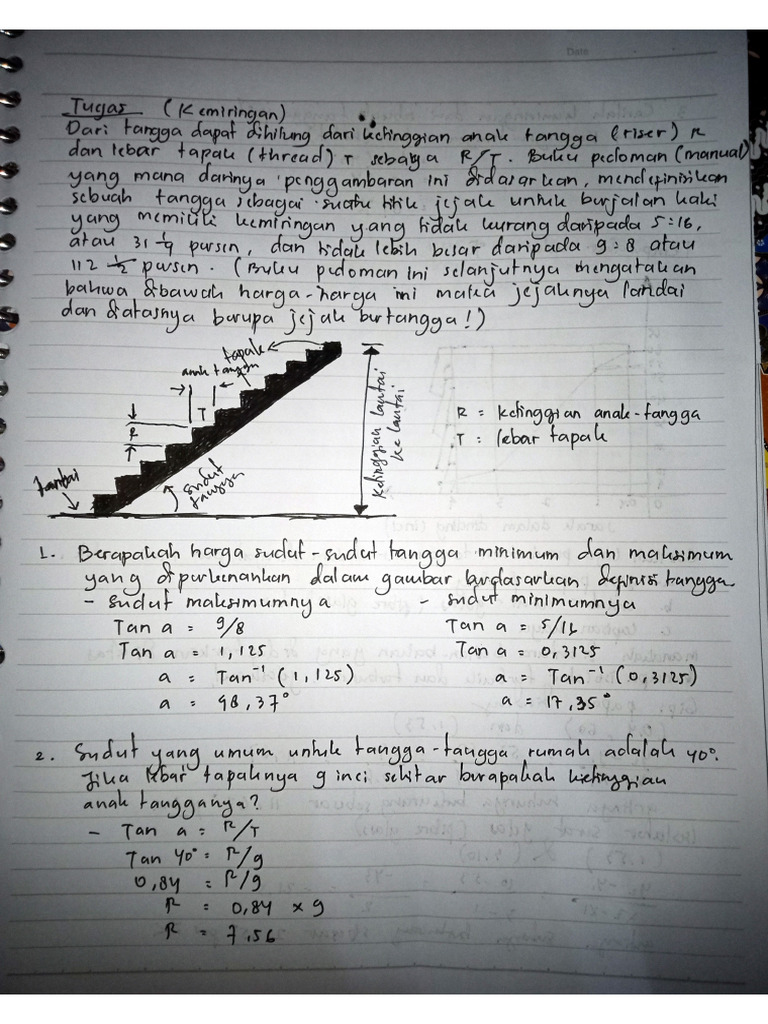 Date
Tugas (Kemiringan)
Dari tangga dapat dihitung dari ketinggian anak tangga (riser) R
dan lebar tapak (thread) T sebaga R/T. Buku pedoman (manual)
yang mana darinya penggambaran ini didasarkan, mendefinisikan
sebuah tangga sebagai suatu titik jejak untuk berjalan kaki
yang memiliki kemiringan yang tidak kurang daripada 5:16,
atau 31 1/4 persen, dan tidak lebih besar daripada 9:8 atau
112 1/2 persen. (Buku pedoman ini selanjutnya mengatakan
bahwa dibawah harga-harga ini maka jejaknya landai
dan diatasnya berupa jejak bertangga!)
tapak
anak tangga
T
R
lantai
sudut tangga
Ketinggian lantai ke lantai
R = Ketinggian anak-tangga
T : lebar tapak
1. Berapakah harga sudut-sudut tangga minimum dan maksimum
yang diperkenankan dalam gambar berdasarkan definisi tangga
- Sudut maksimumnya - sudut minimumnya
Tan a = 9/8 Tan a = 5/16
Tan a = 1,125 Tan a = 0,3125
a = Tan⁻¹ (1,125) a = Tan⁻¹ (0,3125)
a = 48,37° a = 17,35°
2. Sudut yang umum untuk tangga-tangga rumah adalah 40°.
Jika lebar tapaknya 9 inci sekitar berapakah ketinggian
anak tangganya?
- Tan a = R/T
Tan 40° = R/9
0,84 = R/9
R = 0,84 × 9
R = 7,56